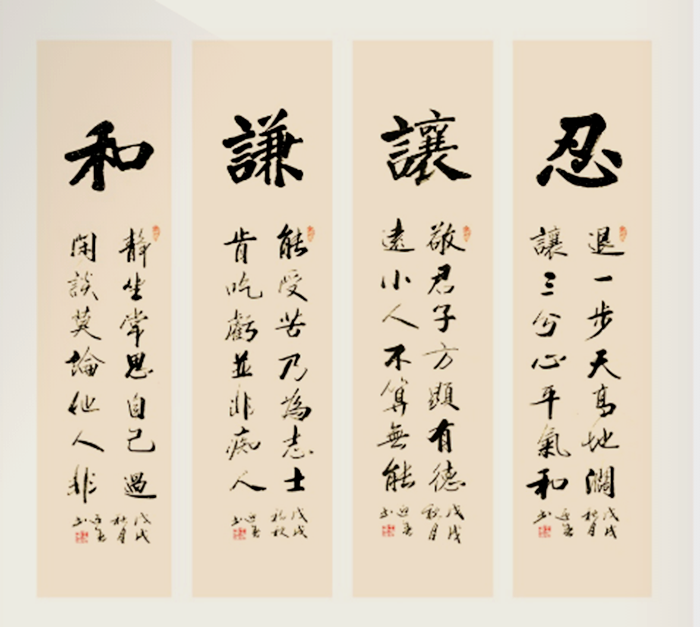 忍
退一步天高地濶
讓三分心平氣和
戊戌
秋月
讓
敬君子方顯有德
遠小人不算無能
戊戌
秋月
謙
能受苦乃為志士
肯吃虧並非痴人
戊戌
和
靜坐常思自己過
閑談莫論他人非
戊戌
秋月